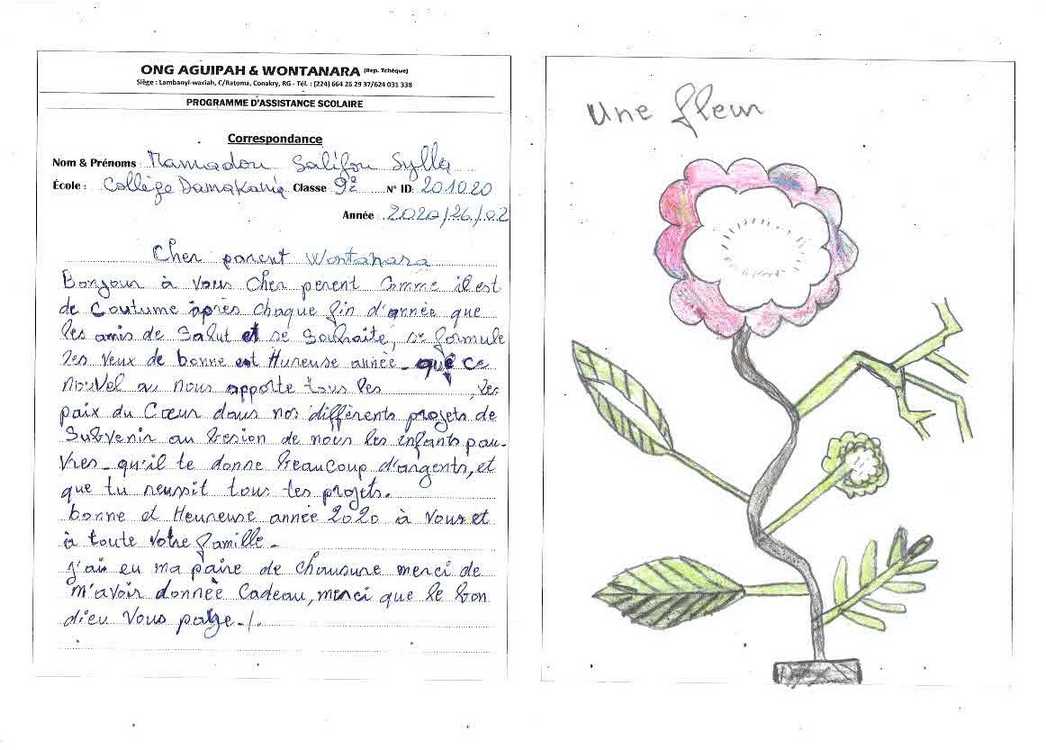 ONG AGUIPAH & WONTANARA (Rep. Tchèque)
Siège : Lambanyi-waxiah, C/Ratoma, Conakry, RG - Tél. : (224) 664 26 29 37/624 031 338
PROGRAMME D'ASSISTANCE SCOLAIRE
Correspondance
Nom & Prénoms Mamadou Salifou Sylla
École : Collège Damakania Classe 9e N° ID: 201020
Année 2020/26/02
Cher parent Wontanara
Bonjour à vous cher perent comme il est
de coutume après chaque fin d'année que
les amis de Salut et se Souhaite, se formule
les veux de bonne est Hureuse année - que ce
nouvel an nous apporte tous les
paix du Cœur dans nos différents projets de
Subvenir au besion de nous les enfants pau-
vres - qu'il te donne beaucoup d'argents, et
que tu reussit tous tes projets.
bonne et Heureuse année 2020 à vous et
à toute votre famille -
j'ais eu ma paire de chausure merci de
m'avoir donnée Cadeau, merci que le bon
dieu vous paye -/.
Une fleur